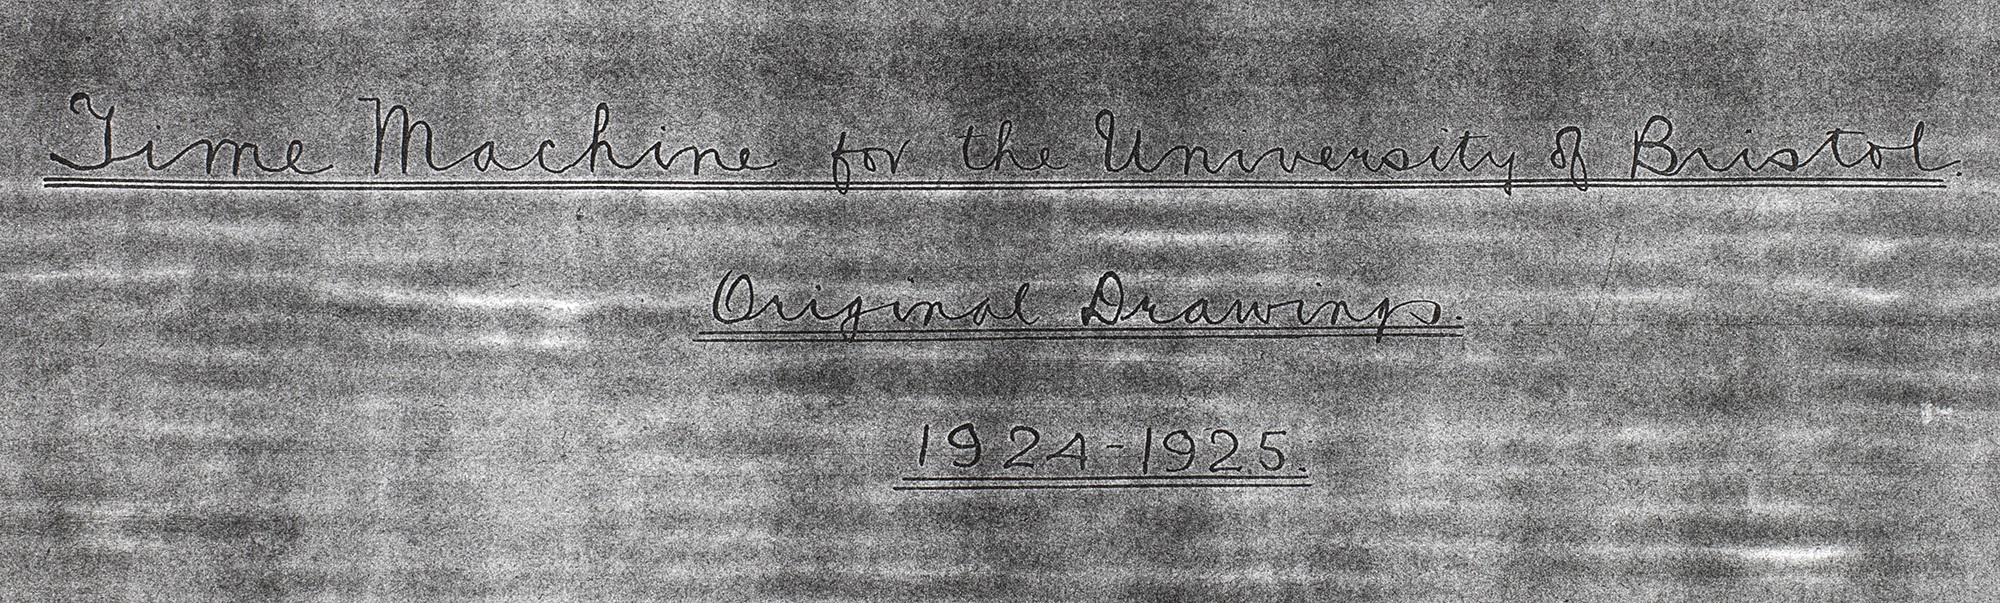 Time Machine for the University of Bristol.
Original Drawings.
1924-1925.